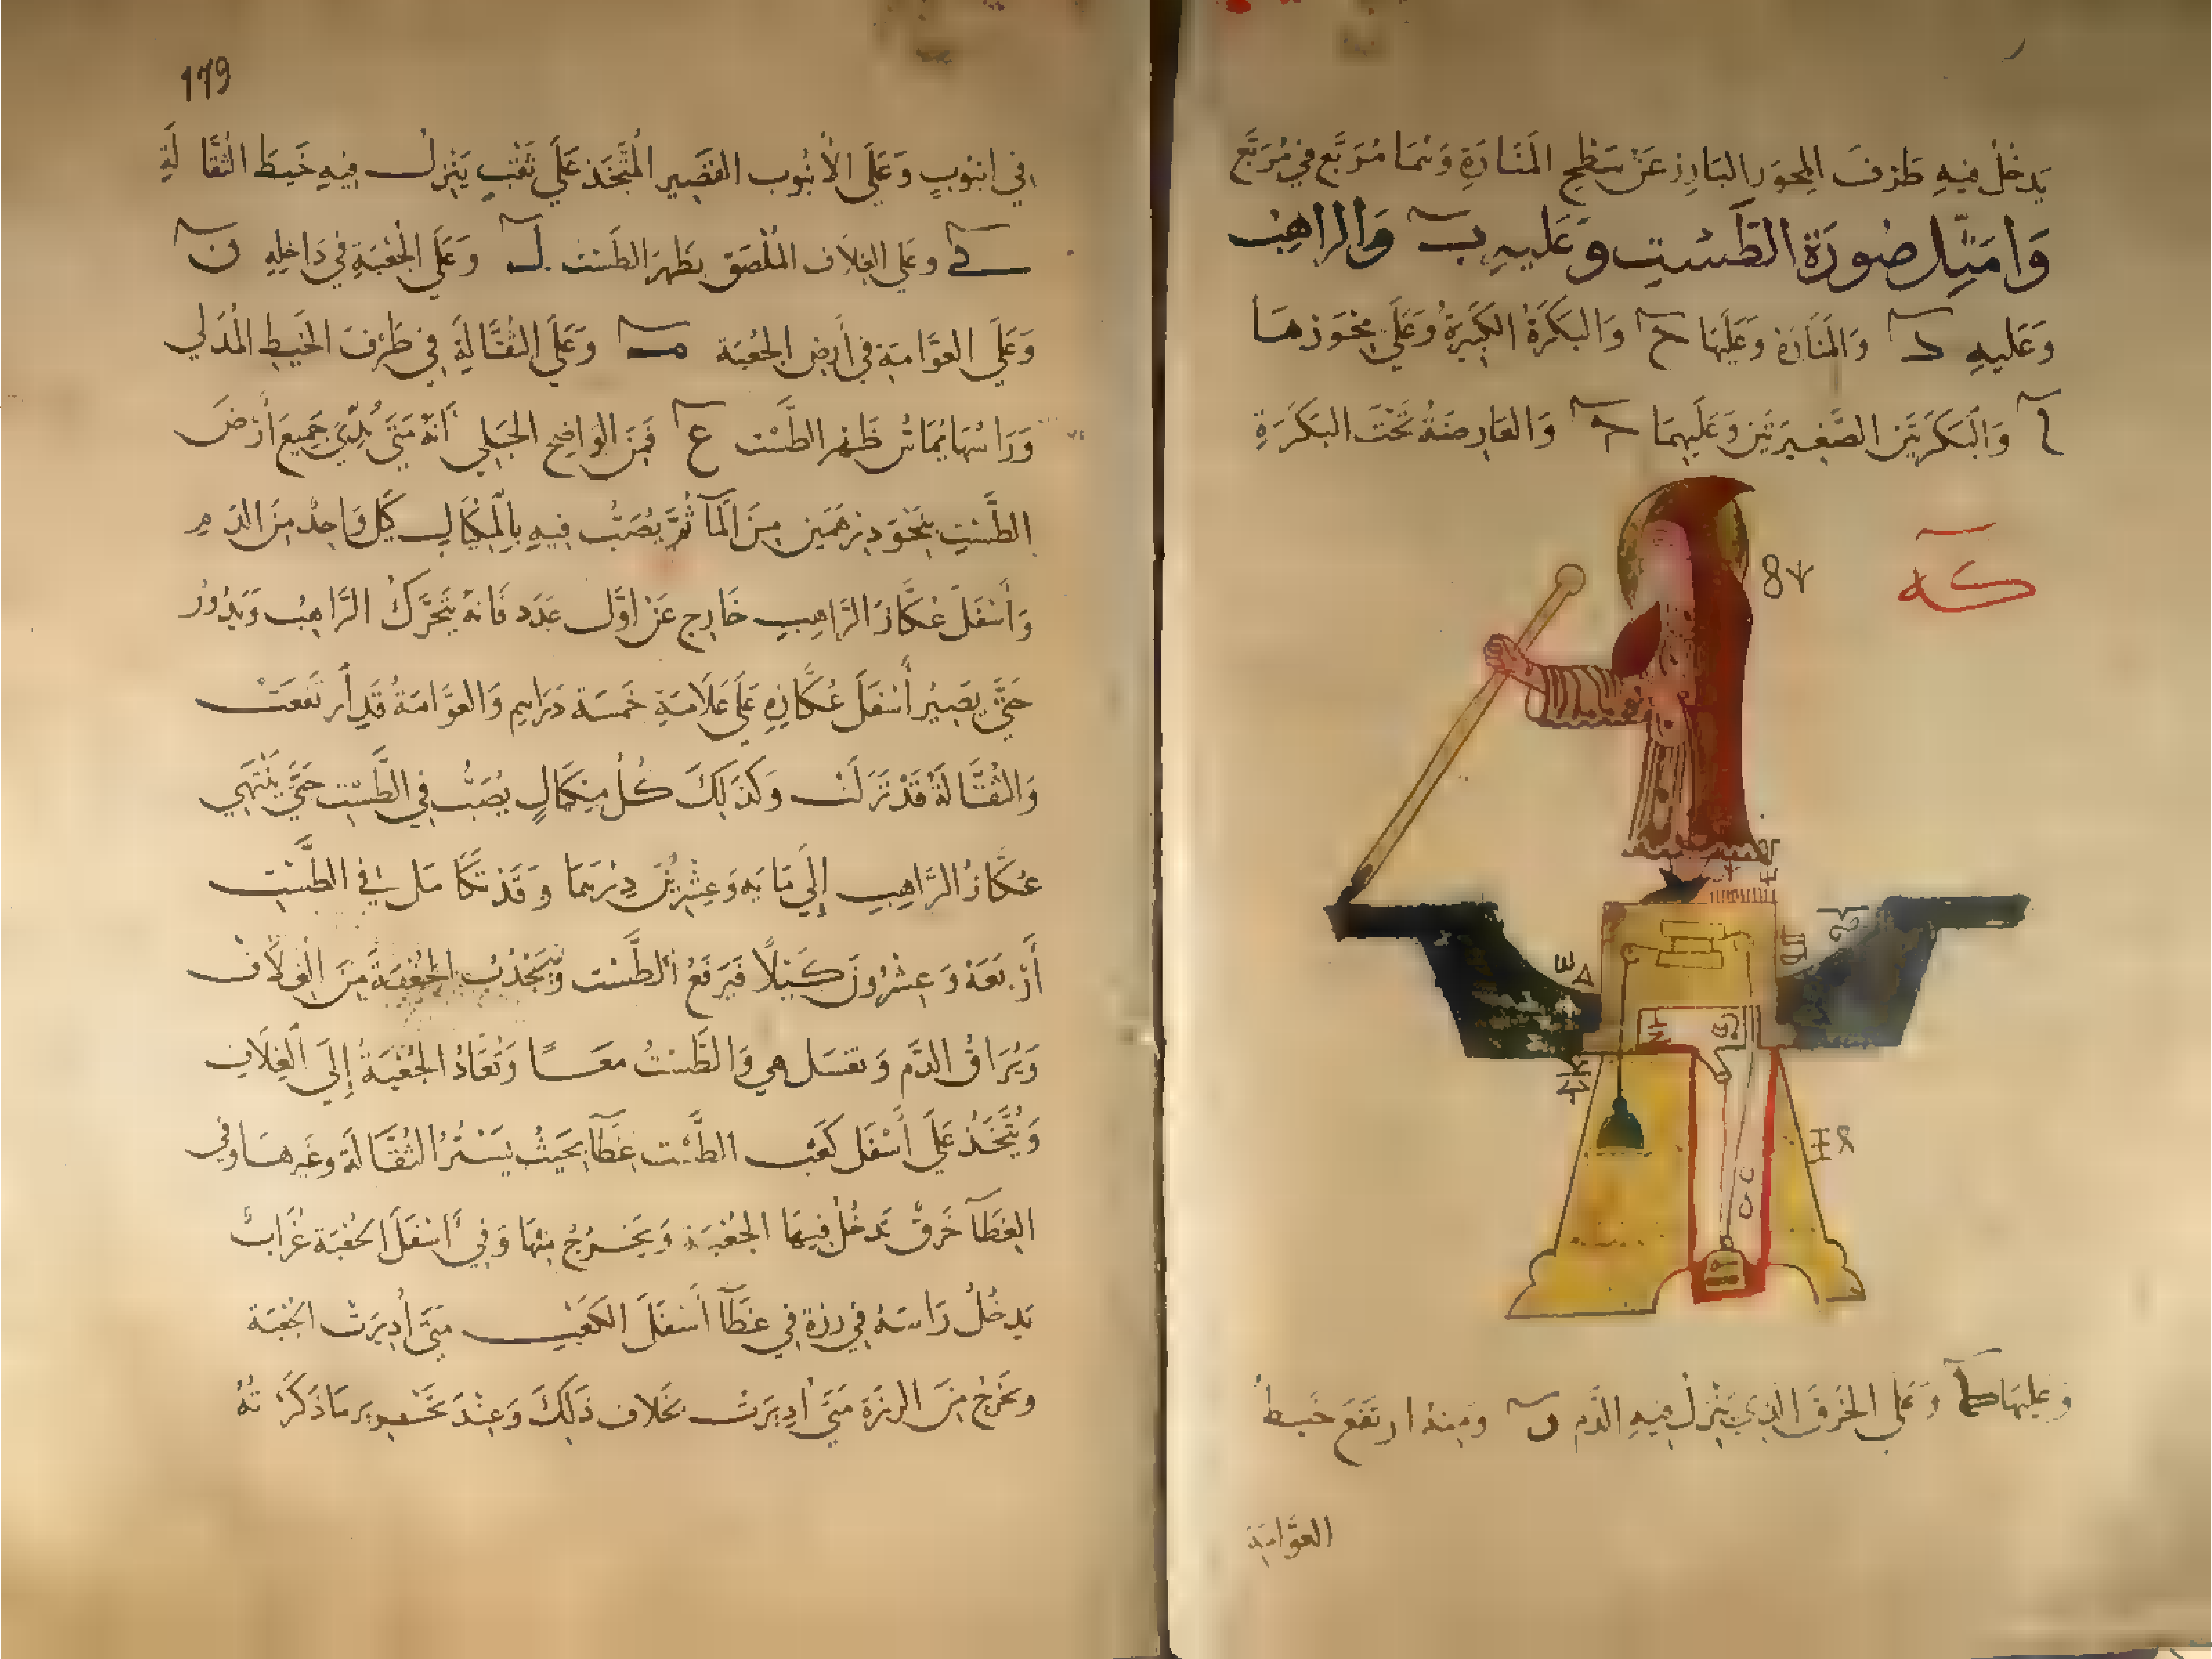 يَدخُلُ فيهِ طَرَفَ المِحوَر البَارِز عَنْ سَطْحِ المَنَارَةِ وَهُمَا مُرَبَّع في مُرَبَّع
وَامَثِّل صُورَةَ الطَّسْتِ وَعَليهِ ب وَالراهِبُ
وَعَليهِ د وَالمَنَارَة وَعَلَيْهَا ح وَالبَكَرَةُ الكَبيَرةُ وَعَلَي مِحْوَرهَا
آ وَالبَكَرَتَين الصَّغِيرَتَين وَعَلَيهِمَا وَالعَارِضَةُ تَحْتَ البَكَرَةِ
كه
وَعَلِيهَا ط وَعَلي الخَرَقَ الذِي يَنْزِلُ فيهِ الدَّم ن وَمِنهُ ارتَفَعَ خَيط
العَوَّامَة
179
في انبُوبٍ وَعَلَي الأنْبُوب القَصَير المتَّخَذ عَلَي ثَقْبٍ يَنْزِلُ فيهِ خَيطَ الثقَّالَةِ
ي وعَلي الغلَاف المُلْصَق بظَهرَ الطَسْت ل وَعَلَي الجُعْبَةِ في دَاخلِهِ ن
وَعَلَي العَوَّامَةِ في أَرضِ الجعُبَة م وَعَلَي الثُقَّالَةِ في طَرَفَ الخَيطِ المُدَلي
وَرَاسُهَا يُمَاسُ ظَهْر الطَّسْت ع فَمِنَ الواضِح الجَلِي أَنهُ مَتَي بُلِيَّ جَميعَ أَرْضَ
الطَّسْتِ بنَحْوَ دِرْهَمَين مِنَ المَآ ثُمَّ يُصَبُّ فيهِ بالمِكيَالِ كَيل وَاحِدْ مِنَ الدَم
وَأَسْفَلَ عُكَّازَ الرَّاهِبِ خَارِج عَنْ اوَّل عَدَد فَانهُ يَتَحَرَّكُ الرَّاهِبُ وَيَدُورُ
حَتَّي يَصِيُر أَسْفَلَ عُكَّازِهِ عَلَي عَلَامَةِ خَمسَة دَرَاهِم وَالعَوَّامَةُ قَدِ أرتَفعَتْ
وَالثُقَّالَةُ قَدْ نَزَلَتْ وَكَذَلِكَ كُلُ مِكيَالٍ يُصَبُّ في الطَّسْتِ حَتَّي يَنْتَهَي
عُكَّازُ الرَّاهِبِ إلَي مَايَهِ وَعِشْرِيْنَ دِرْهَمَا وَقَدْ تَكَامَل في الطَّسْتِ
أَرْبعَة وَعِشْرُونَ كَيْلًا فَيَرفَعُ الطَّسْت وَيَجْذُبُ الجُعْبَةَ مِنَ الغِلَافْ
وَيُرَاقُ الدَّم وَتغسَل هِي وَالطَّسْتُ مَعًا وَتُعَادُ الجُعْبَةُ إِلَي الغِلَافِ
وَيُتَّخَذُ عَلَي أَسْفَل كَعْبِ الطَّسْت غِطَآ بحَيثُ يَسْتُرُ الثُقَّالَة وغَيرهَا وَفي
الغِطَآ خَرقْ تَدخُل فيهَا الجُعْبَة وَيَخرُجُ مِنهَا وَفي أَسْفَلَ الجُعْبَة غُرَابْ
يَدخُلُ رَاسَهُ في رزة في غطَآ أَسْفَلَ الكَعْبِ مَتَي أُدِيرَتْ الجُعْبَة
وَتَخرجُ مِنَ الرزَة مَتَي أُدِيرَتْ بخَلاف ذَلِكَ وَعِنْدَ تَحْرير مَا ذَكَرْتُهُ